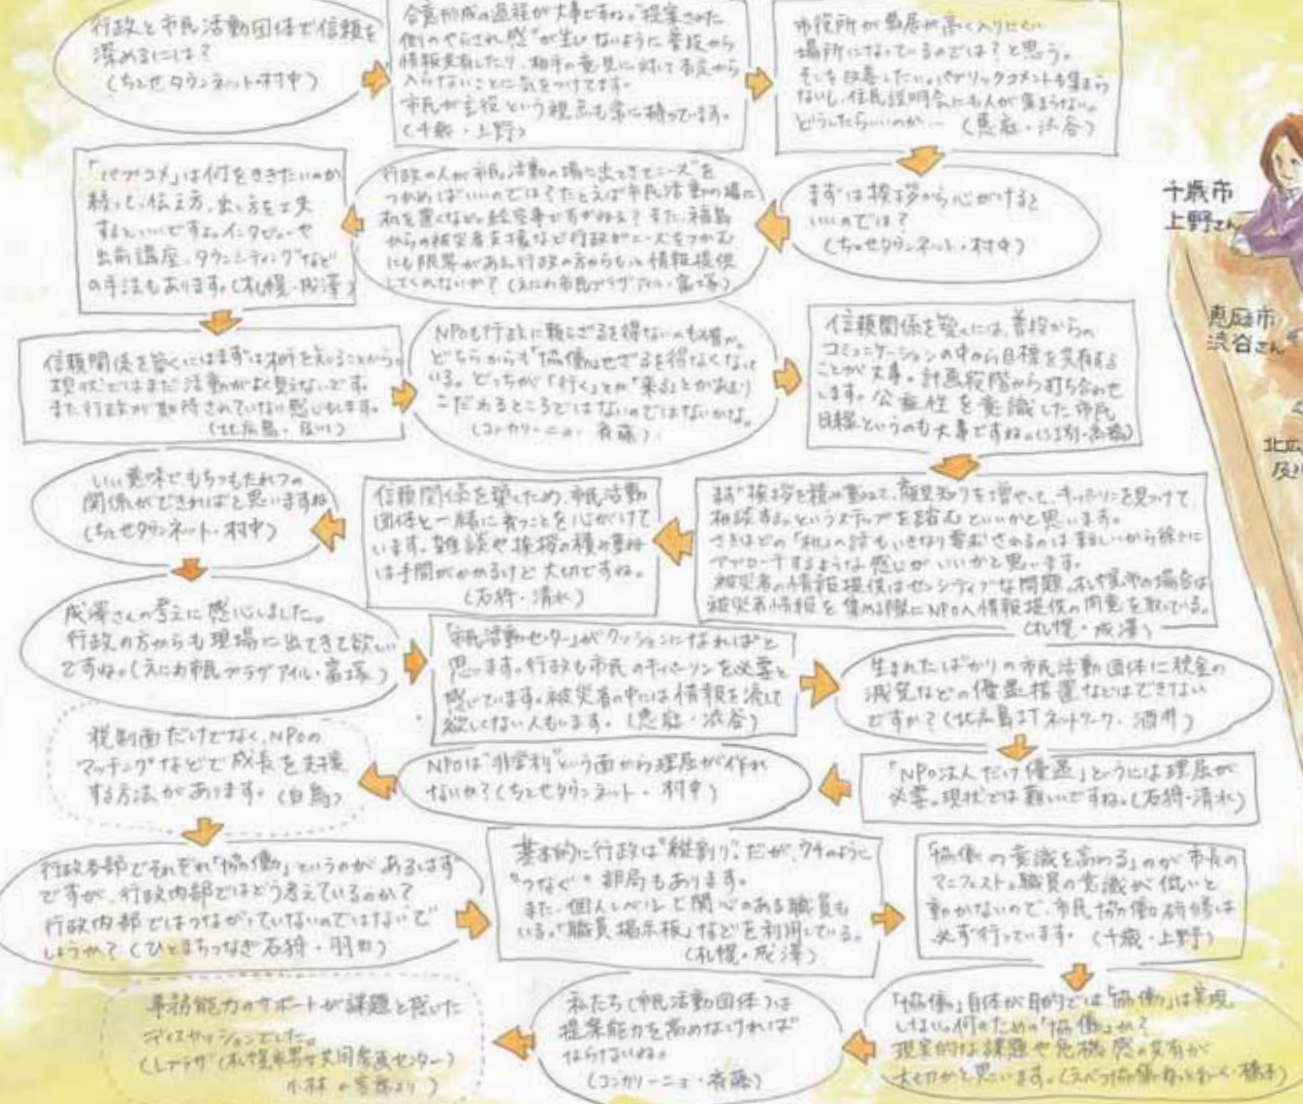 行政と市民活動団体で信頼を
深めるには?
(ちとせタウンネット・村中)
合意形成の過程が大事ですね。"提案された
側のやらされ感"が生じないように普段から
情報共有したり、相手の意見に対して否定から
入らないことに気をつけてます。
市民が主役という視点も常に持っています。
(千歳・上野)
市役所が敷居が高く入りにくい
場所になっているのでは?と思う。
そこを改善したい。パブリックコメントも集まら
ないし、住民説明会にも人が集まらない。
どうしたらいいのか… (恵庭・渋谷)
まずは挨拶から心がけると
いいのでは?
(ちとせタウンネット・村中)
行政の人が市民活動の場に出てきてニーズを
つかめばいいのでは?たとえば市民活動の場に
机を置くなど。絵空事ですかねえ?また、福島
からの被災者支援など行政がニーズをつかむ
にも限界がある。行政の方からもっと情報提供
してくれないか?(えにわ市民プラザアイル・富塚)
「パブコメ」は何をききたいのか
絞って、伝え方、出し方を工夫
するといいですよ。インタビューや
出前講座、タウンミーティングなど
の手法もあります。(札幌・成澤)
信頼関係を築くにはまずは相手を知ることから。
現状ではまだ活動がよく見えないです。
また行政が期待されていない感じもします。
(北広島・及川)
NPOも行政に頼らざるを得ないのも確か。
どちらからも"協働"せざるを得なくなって
いる。どっちが「行く」とか「来る」とかあまり
こだわるところではないのではないかな。
(コンカリーニョ・斉藤)
信頼関係を築くには、普段からの
コミュニケーションの中から目標を共有する
ことが大事。計画段階から打ち合わせ
します。公益性を意識した市民
目線というのも大事ですね。
まず挨拶を積み重ねて、顔見知りを増やして、キーパーソンを見つけて
相談する。というステップを踏むといいかと思います。
さきほどの「机」の話もいきなり要求されるのは難しいから徐々に
アプローチするような感じがいいかと思います。
被災者の情報提供はセンシティブな問題。札幌市の場合は
被災者情報を集める際にNPOへ情報提供の同意を取っている。
(札幌・成澤)
信頼関係を築くため、市民活動
団体と一緒に育つことを心がけて
います。雑談や挨拶の積み重ね
は手間がかかるけど大切ですね。
(石狩・清水)
いい意味でもちつもたれつの
関係ができればと思いますね
(ちとせタウンネット・村中)
成澤さんの考えに感心しました。
行政の方からも現場に出てきて欲しい
ですね。(えにわ市民プラザアイル・富塚)
「市民活動センター」がクッションになればと
思います。行政も市民のキーパーソンを必要と
感じています。被災者の中には情報を流して
欲しくない人もいます。(恵庭・渋谷)
生まれたばかりの市民活動団体に税金の
減免などの優遇措置などはできない
ですか?(北広島ITネットワーク・酒井)
「NPO法人だけ優遇」というには理屈が
必要。現状では難しいですね。(石狩・清水)
NPOは"非営利"という面から理屈が作れ
ないか?(ちとせタウンネット・村中)
税制面だけでなく、NPOの
マッチングなどで成長を支援
する方法があります。(白鳥)
行政各部でそれぞれ「協働」というのがあるはず
ですが、行政内部ではどう考えているのか?
行政内部ではつながっていないのではないで
しょうか?(ひとまちつなぎ石狩・羽田)
基本的に行政は"縦割り"。だが、ウチのように
"つなぐ"部局もあります。
また、個人レベルで関心のある職員も
いる。「職員掲示板」などを利用している。
(札幌・成澤)
「協働の意識を高める」のが市長の
マニフェスト。職員の意識が低いと
動かないので、市民協働研修は
必ず行っています。(千歳・上野)
「協働」自体が目的では「協働」は実現
しない。何のための「協働」か?
現実的な課題や危機感の共有が
大切かと思います。(えべつ協働ねっとわーく・橋本)
私たち(市民活動団体)は
提案能力を高めなければ
ならないね。
(コンカリーニョ・斉藤)
事務能力のサポートが課題と感じた
ディスカッションでした。
(Lプラザ(札幌市男女共同参画センター)
小林の客席より)
千歳市
上野さん
恵庭市
渋谷さん
北広
及川